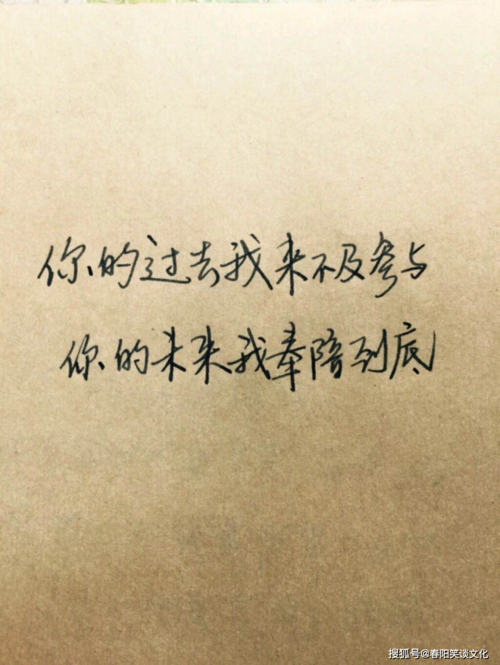 你的过去我来不及参与
你的未来我奉陪到底
搜狐号@春阳笑谈文化